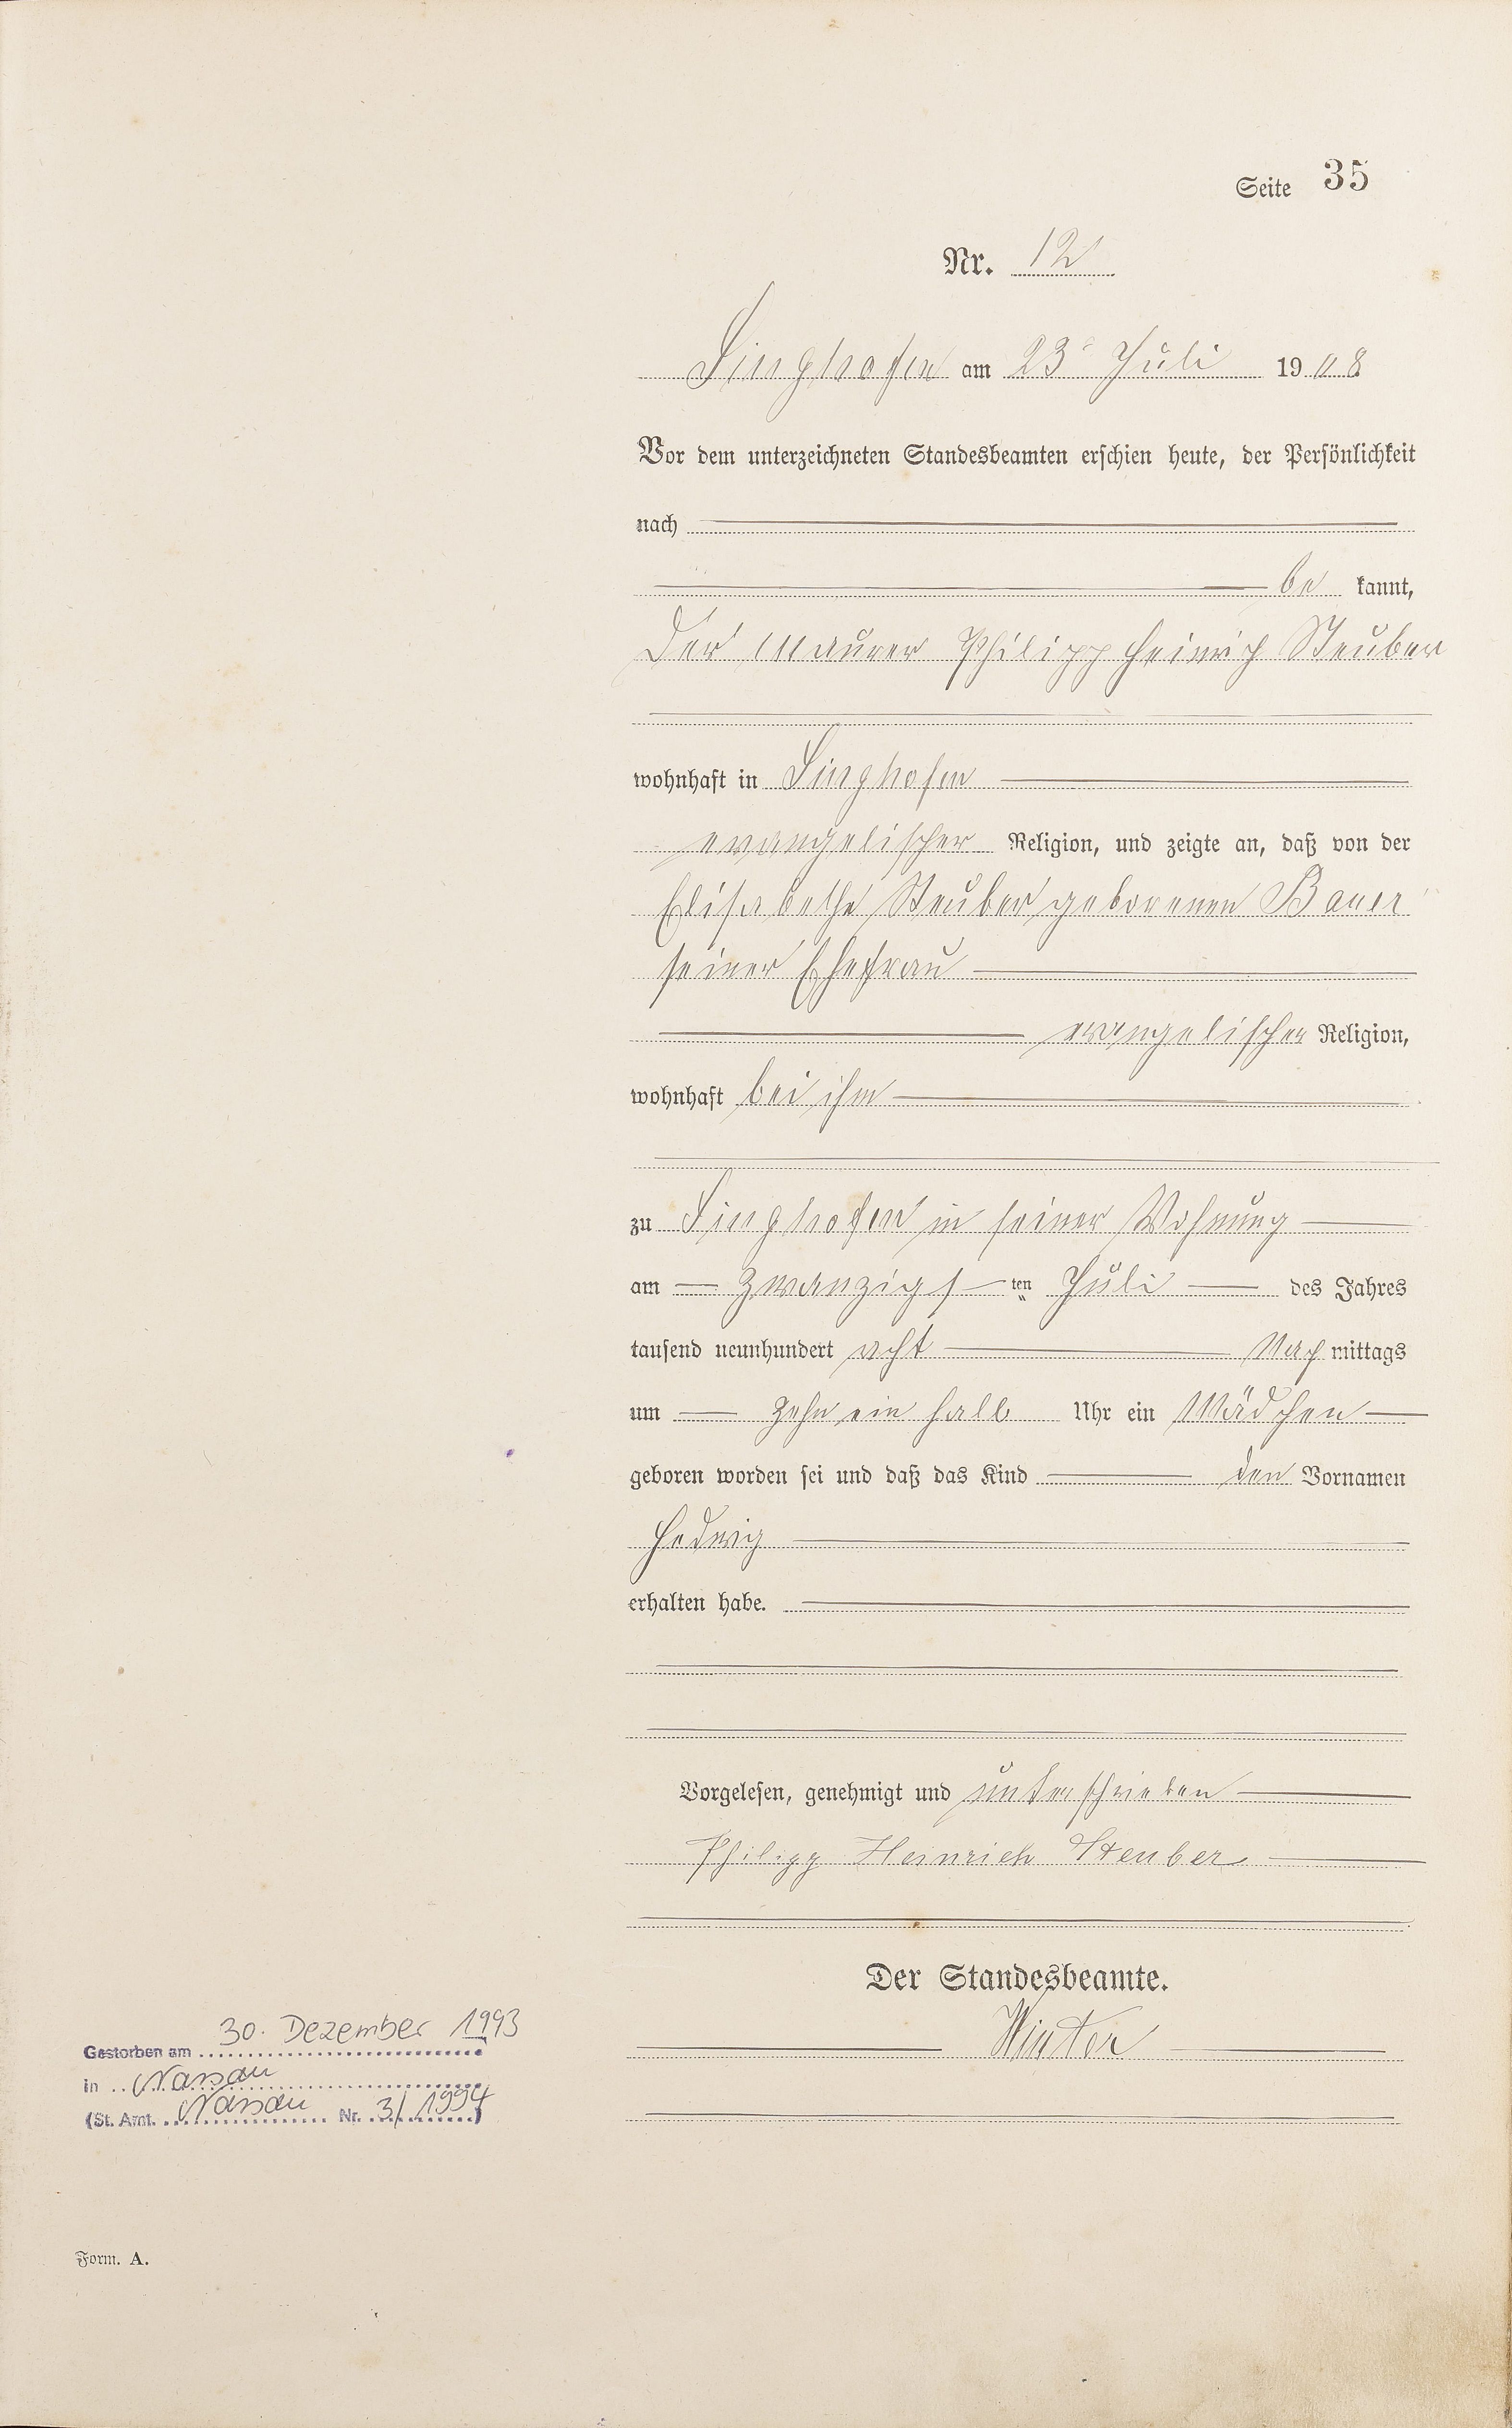 Seite 35
Nr. 12
Singhofen am 23. Juli 1908
Vor dem unterzeichneten Standesbeamten erschien heute, der Persönlichkeit
nach
be kannt,
der Maurer Philipp Heinrich Steuber
wohnhaft in Singhofen
evangelischer Religion, und zeigte an, daß von der
Elisabethe Steuber geborenen Bauer
seiner Ehefrau
evangelischer Religion,
wohnhaft bei ihm
zu Singhofen in seiner Wohnung
am zwanzigsten Juli des Jahres
tausend neunhundert acht Nachmittags
um zehn ein halb Uhr ein Mädchen
geboren worden sei und daß das Kind den Vornamen
Hedwig
erhalten habe.
Vorgelesen, genehmigt und unterschrieben
Philipp Heinrich Steuber
Der Standesbeamte.
Winter
Gestorben am 30. Dezember 1993
in Nassau
(St. Amt. Nassau Nr. 3/1994)
Form. A.